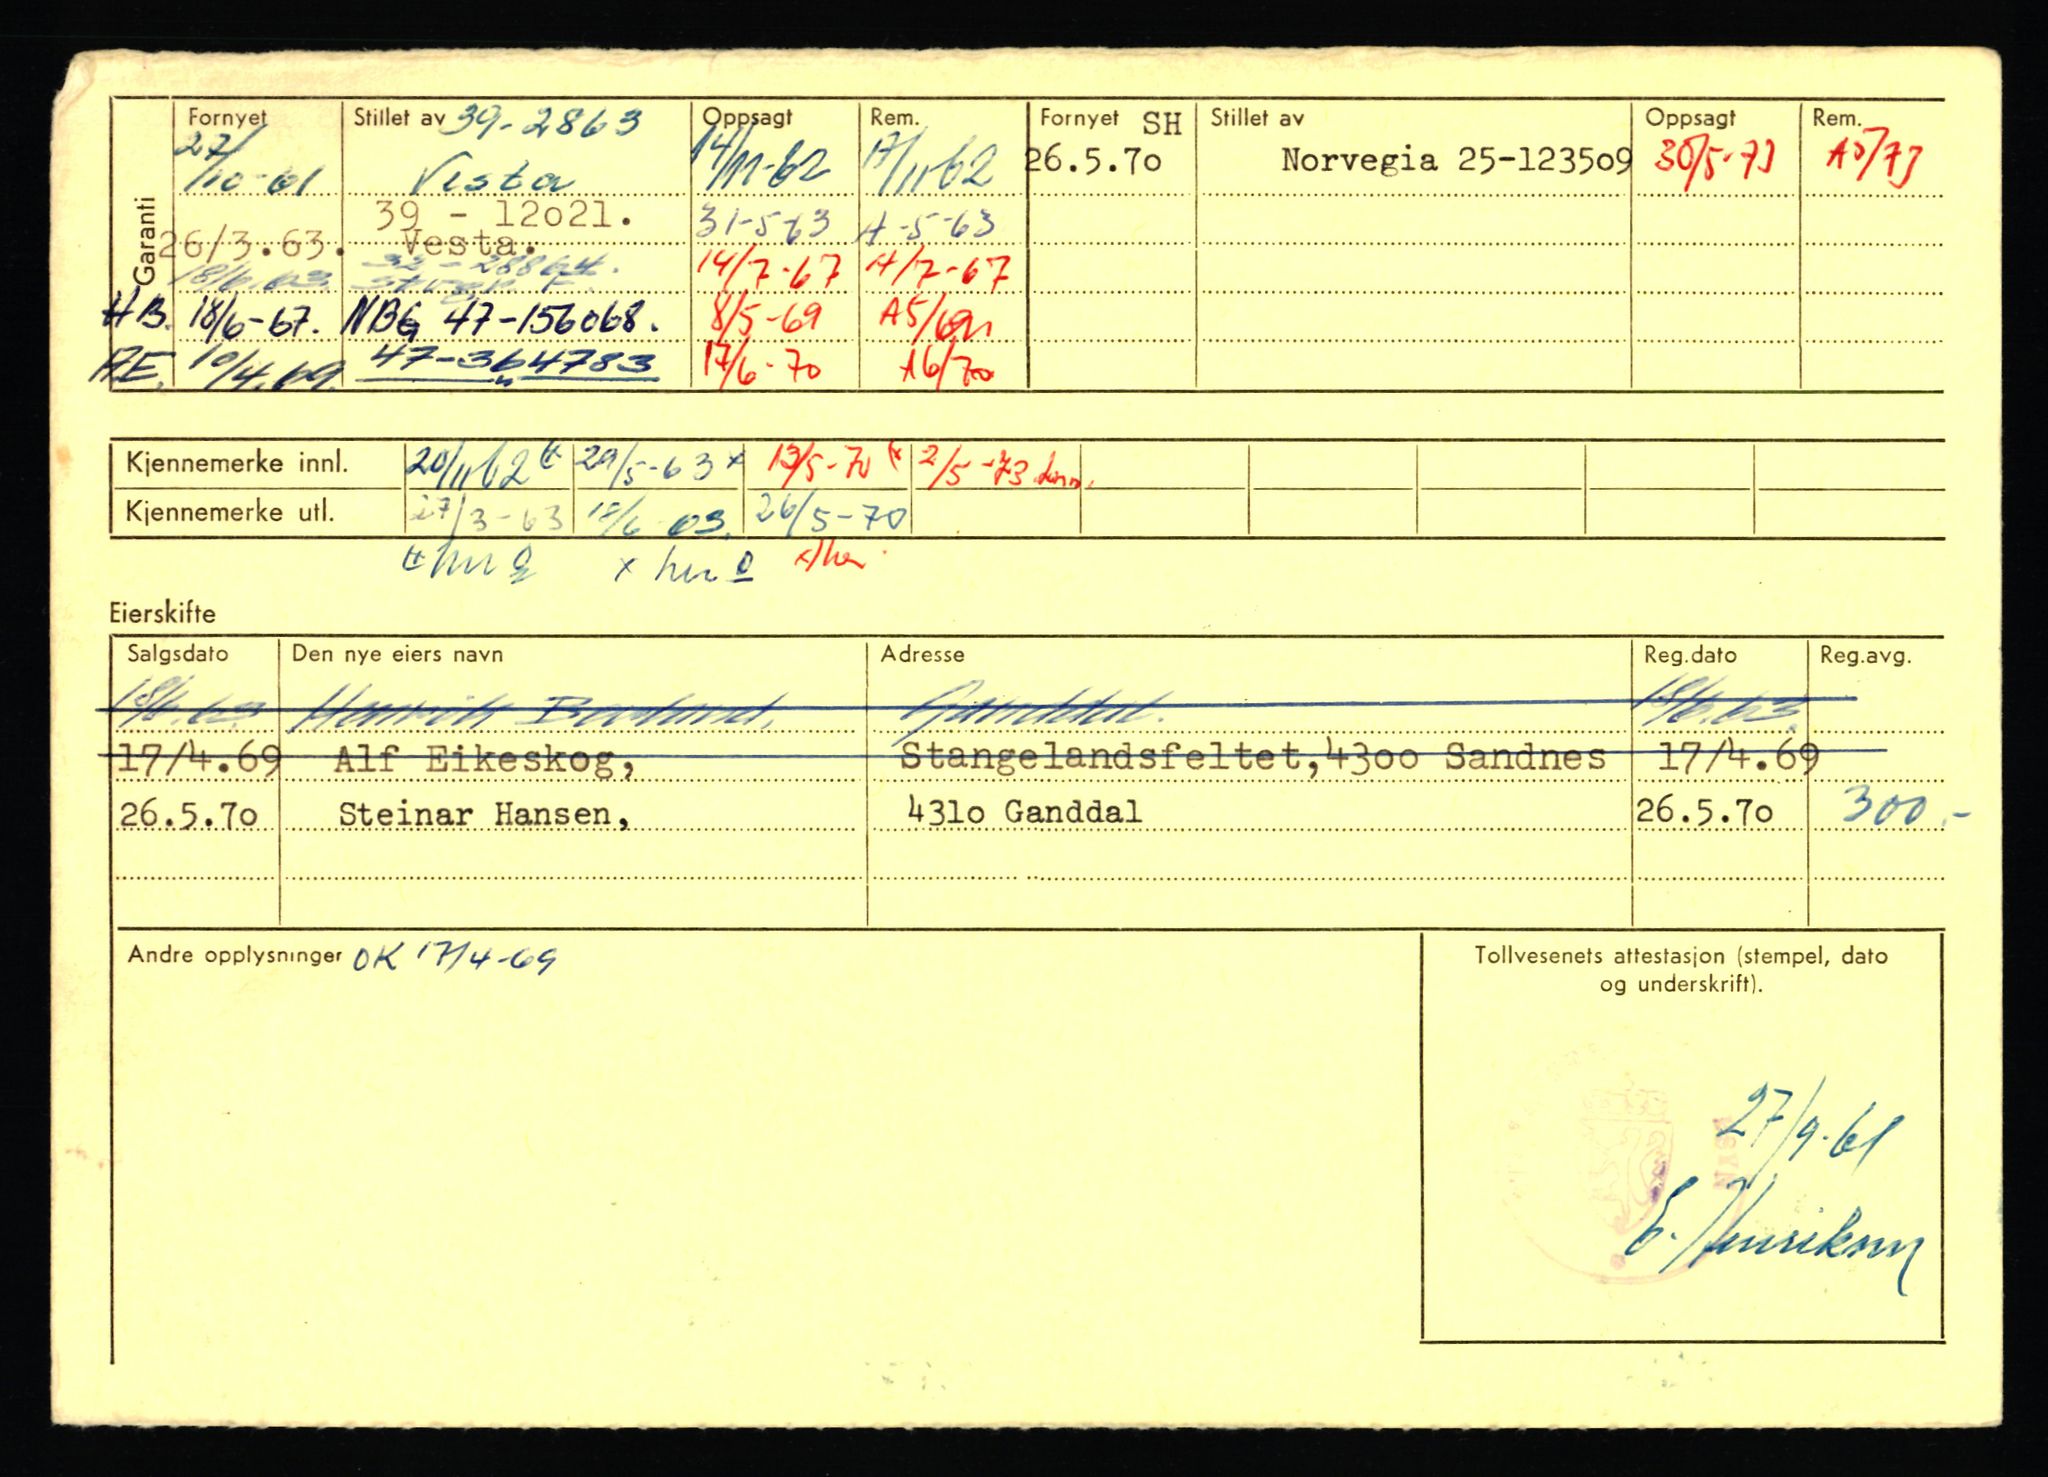 Garanti
Fornyet Stillet av 39-2863 Oppsagt Rem. Fornyet SH Stillet av Oppsagt Rem.
27/10-61 Vesta 14/11-62 17/11-62 26.5.7o Norvegia 25-1235o9 30/5-73 A5/73
26/3.63. 39 - 12o21. Vesta. 31-5-63 A-5-63
18/6.63. 14/7-67 A/7-67
HB. 18/6-67. NBG 47-156068. 8/5-69 A5/69
AE. 10/4.69. 47-364783 17/6-70 A6/70
Kjennemerke innl. 20/11 62 29/5-63 x 13/5-70 2/5-73
Kjennemerke utl. 27/3-63 18/6 63. 26/5-70
Eierskifte
Salgsdato Den nye eiers navn Adresse Reg.dato Reg.avg.
18/6.63. Henrik Ganddal. 18/6.63.
17/4.69 Alf Eikeskog, Stangelandsfeltet,43oo Sandnes 17/4.69
26.5.7o Steinar Hansen, 431o Ganddal 26.5.7o 300.-
Andre opplysninger OK 17/4-69
Tollvesenets attestasjon (stempel, dato
og underskrift).
27/9-61
E. Henriksen